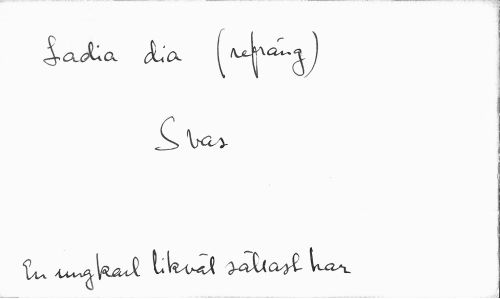 Ladia dia (refräng)
Svas
En ungkarl likväl sällast har